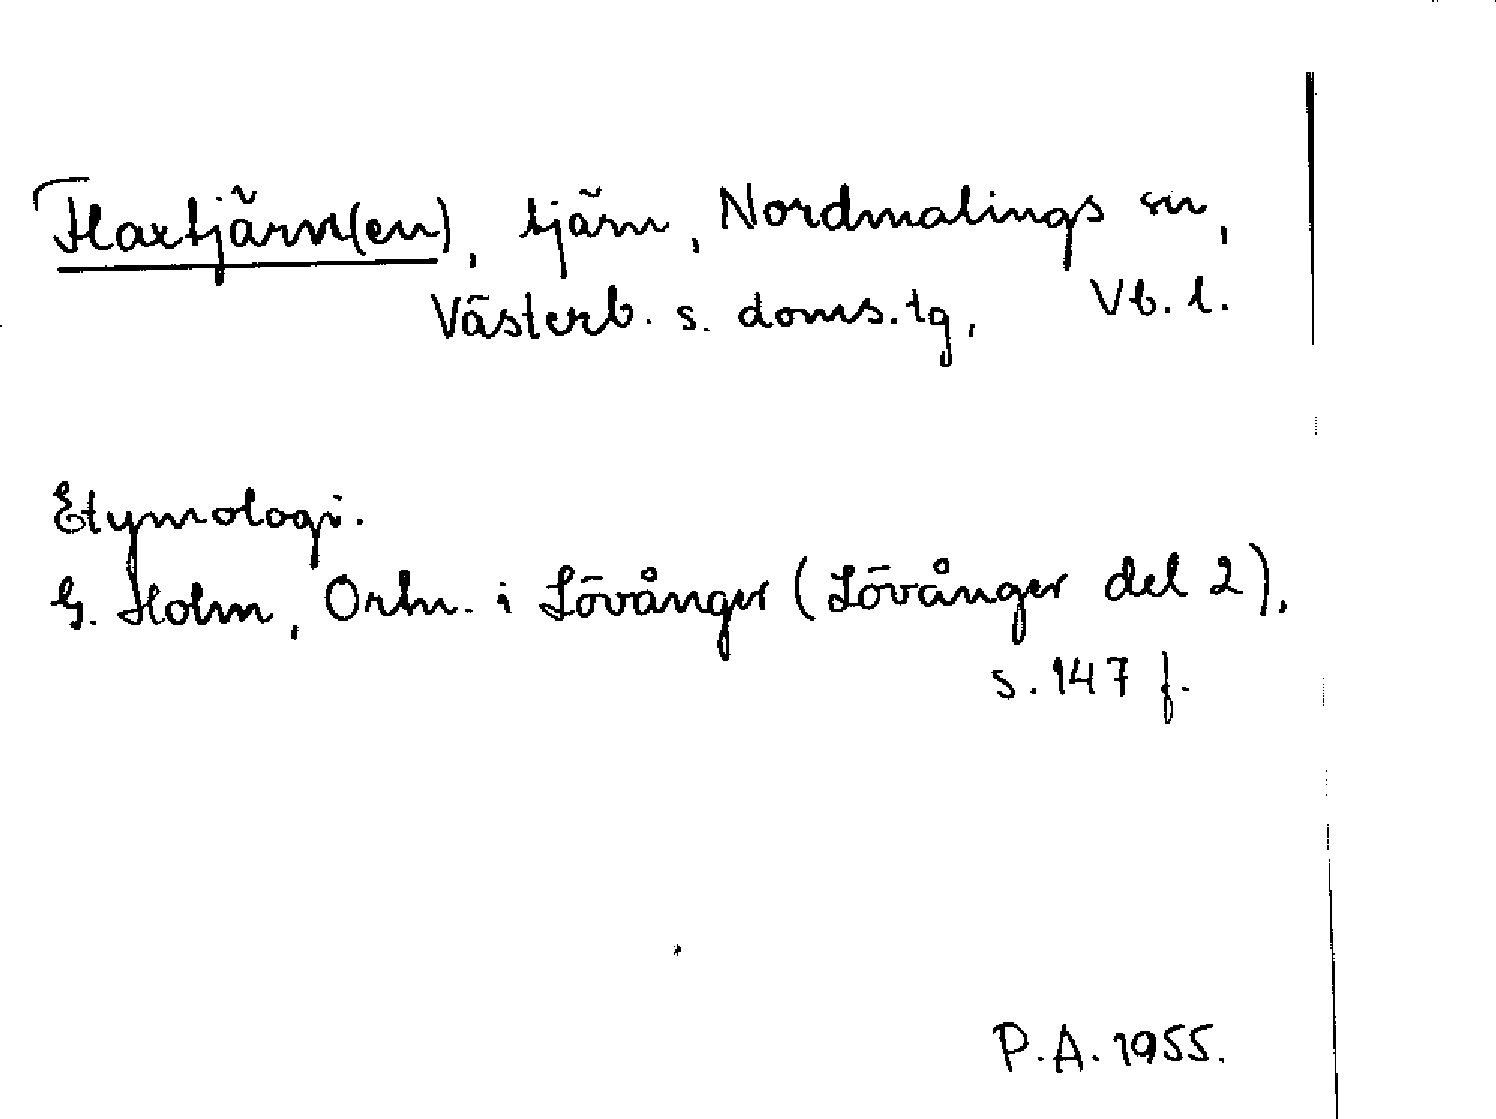 Haxtjärn(en), tjärn, Nordmalings sn,
Västerb. s. doms.tg, Vb. l.
Etymologi.
G. Holm, Ortn. i Lövånger (Lövånger del 2),
s. 147 f.
P.A. 1955.